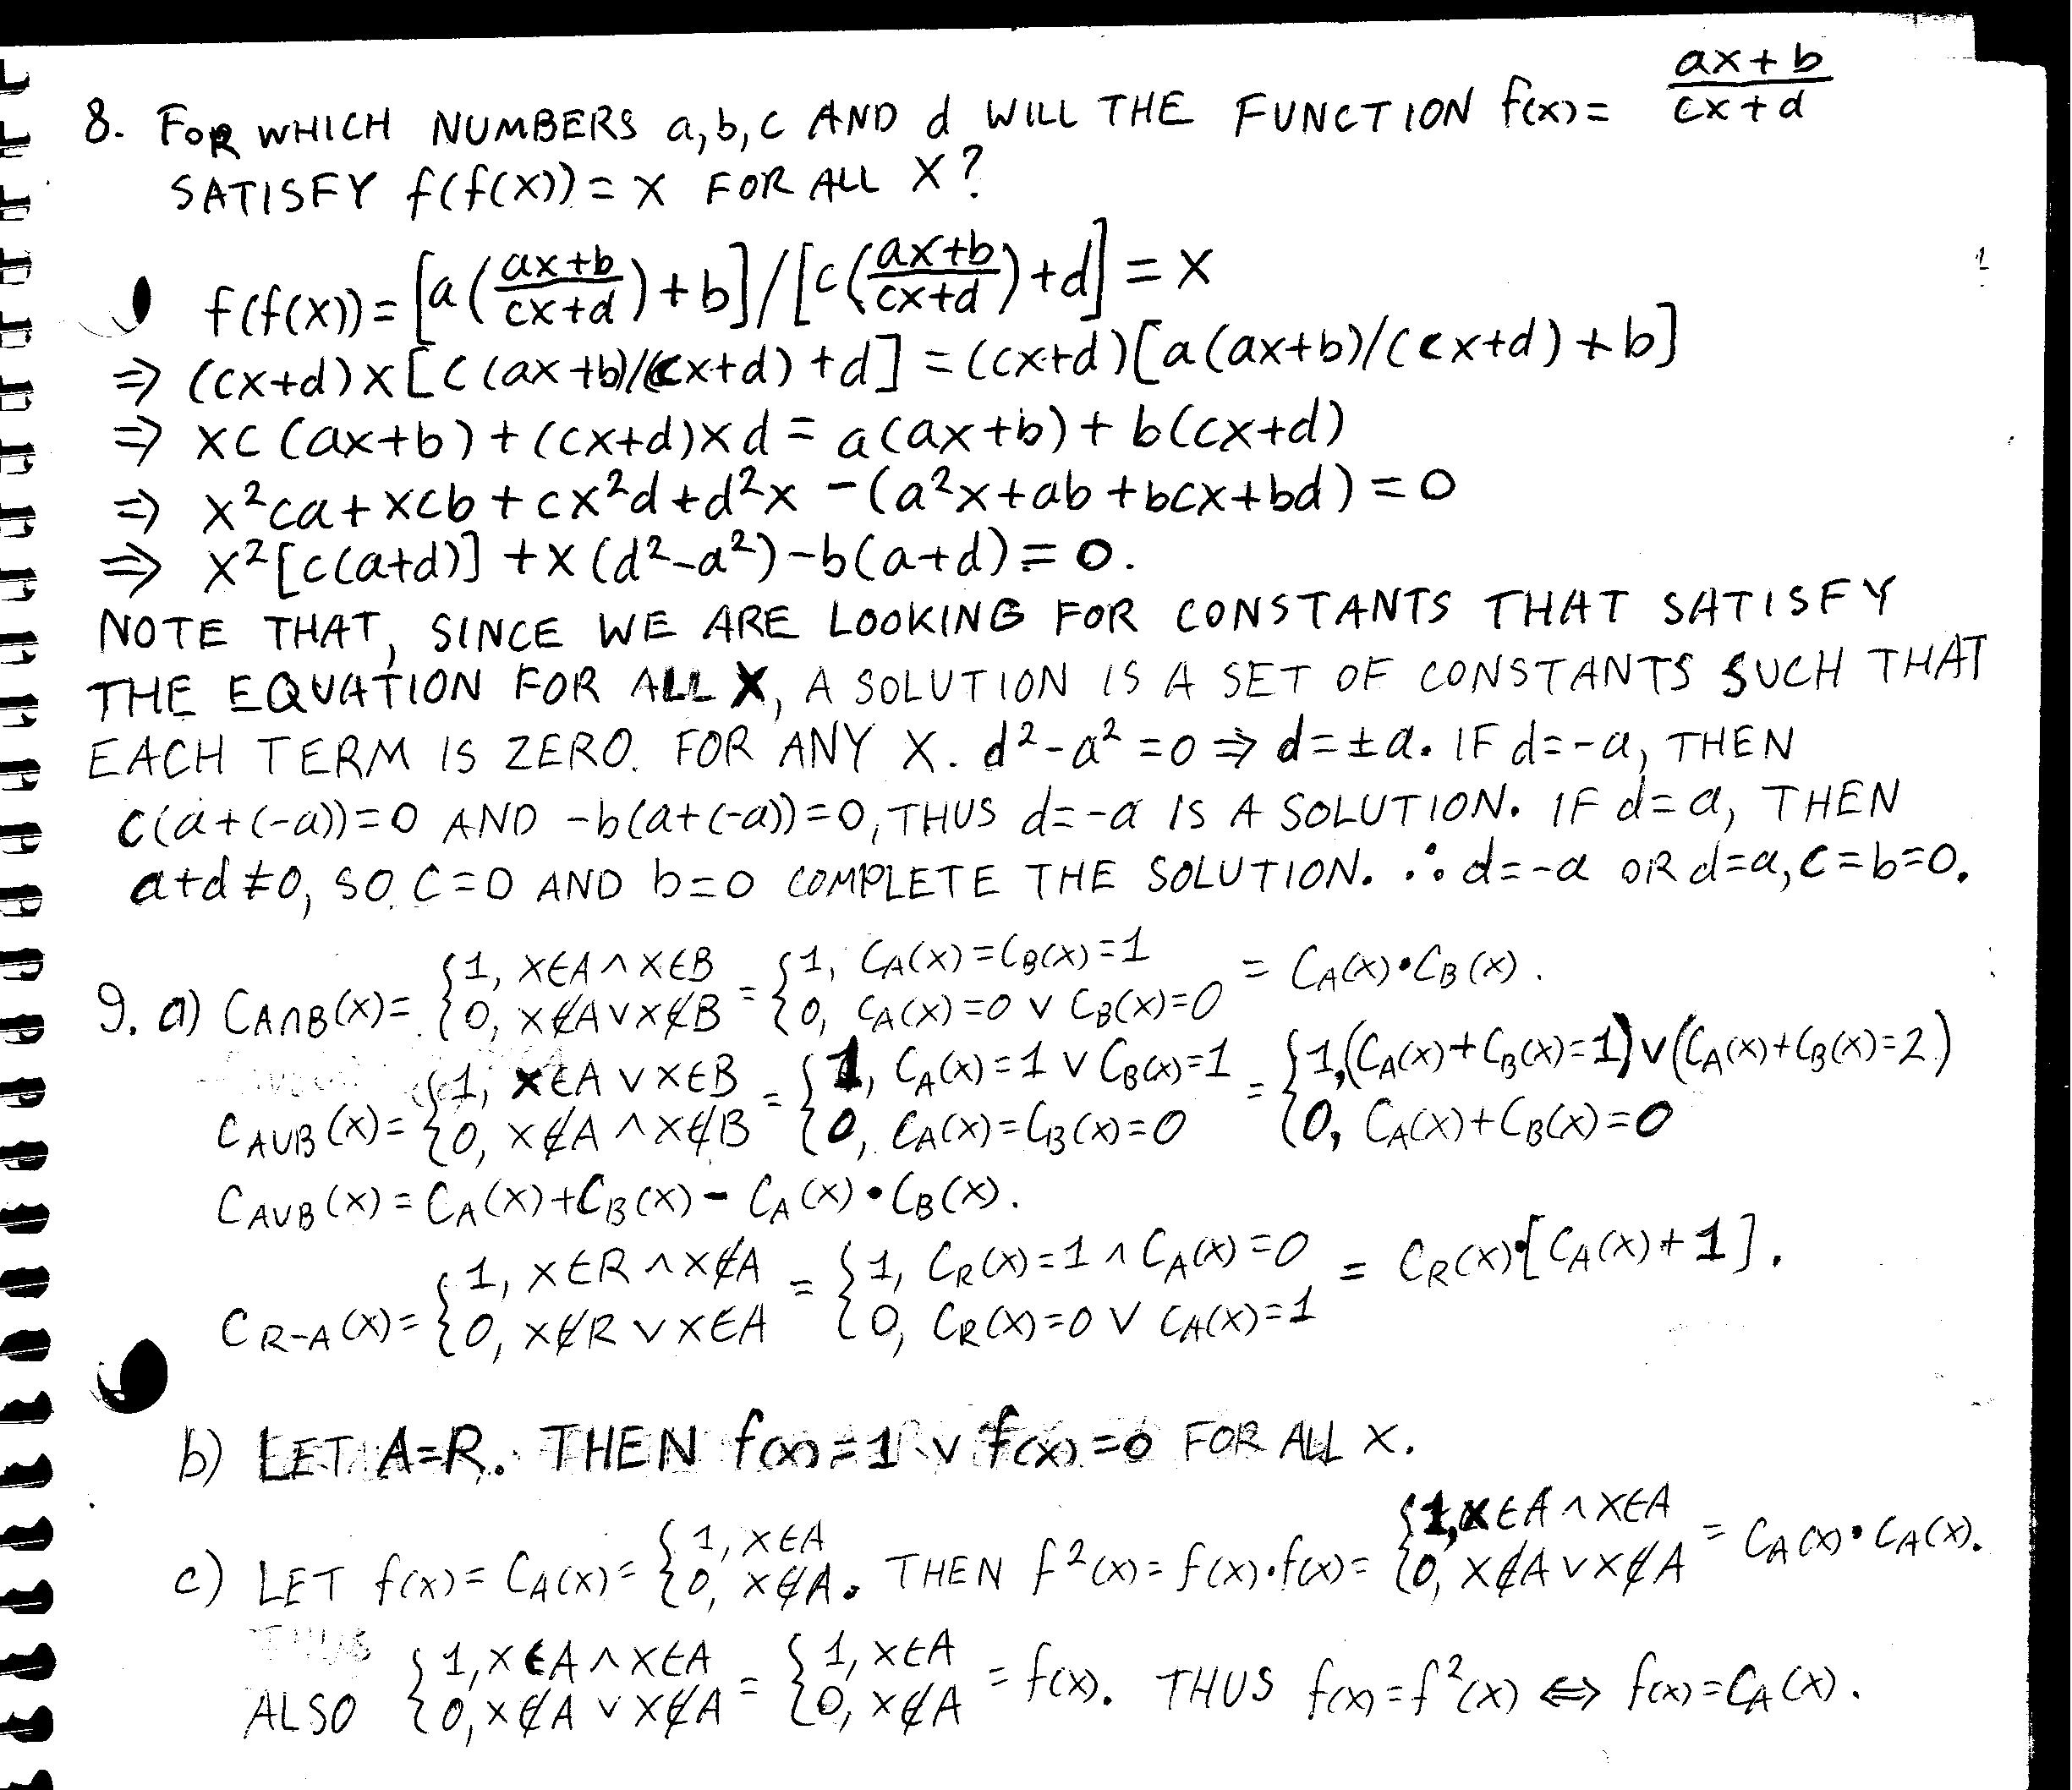 8. FOR WHICH NUMBERS a, b, c AND d WILL THE FUNCTION f(x) = (ax+b)/(cx+d)
SATISFY f(f(x)) = x FOR ALL X?
f(f(x)) = [a((ax+b)/(cx+d)) + b] / [c((ax+b)/(cx+d)) + d] = x
⇒ (cx+d)x[c(ax+b)/(cx+d) + d] = (cx+d)[a(ax+b)/(cx+d) + b]
⇒ xc(ax+b) + (cx+d)xd = a(ax+b) + b(cx+d)
⇒ x²ca + xcb + cx²d + d²x − (a²x + ab + bcx + bd) = 0
⇒ x²[c(a+d)] + x(d²−a²) − b(a+d) = 0.
NOTE THAT, SINCE WE ARE LOOKING FOR CONSTANTS THAT SATISFY
THE EQUATION FOR ALL X, A SOLUTION IS A SET OF CONSTANTS SUCH THAT
EACH TERM IS ZERO. FOR ANY X. d²−a² = 0 ⇒ d = ±a. IF d=−a, THEN
c(a+(−a)) = 0 AND −b(a+(−a)) = 0, THUS d=−a IS A SOLUTION. IF d=a, THEN
a+d ≠ 0, SO C=0 AND b=0 COMPLETE THE SOLUTION. ∴ d=−a OR d=a, C=b=0.
9. a) C_{A∩B}(x) = {1, x∈A ∧ x∈B; 0, x∉A ∨ x∉B = {1, C_A(x)=C_B(x)=1; 0, C_A(x)=0 ∨ C_B(x)=0 = C_A(x)•C_B(x).
C_{A∪B}(x) = {1, x∈A ∨ x∈B; 0, x∉A ∧ x∉B = {1, C_A(x)=1 ∨ C_B(x)=1; 0, C_A(x)=C_B(x)=0 = {1, (C_A(x)+C_B(x)=1) ∨ (C_A(x)+C_B(x)=2); 0, C_A(x)+C_B(x)=0
C_{A∪B}(x) = C_A(x) + C_B(x) − C_A(x)•C_B(x).
C_{R−A}(x) = {1, x∈R ∧ x∉A; 0, x∉R ∨ x∈A = {1, C_R(x)=1 ∧ C_A(x)=0; 0, C_R(x)=0 ∨ C_A(x)=1 = C_R(x)•[C_A(x)+1].
b) LET A=R. THEN f(x)=1 ∨ f(x)=0 FOR ALL X.
c) LET f(x) = C_A(x) = {1, x∈A; 0, x∉A. THEN f²(x) = f(x)•f(x) = {1, x∈A ∧ x∈A; 0, x∉A ∨ x∉A = C_A(x)•C_A(x).
THUS
ALSO {1, x∈A ∧ x∈A; 0, x∉A ∨ x∉A = {1, x∈A; 0, x∉A = f(x). THUS f(x)=f²(x) ⇔ f(x)=C_A(x).